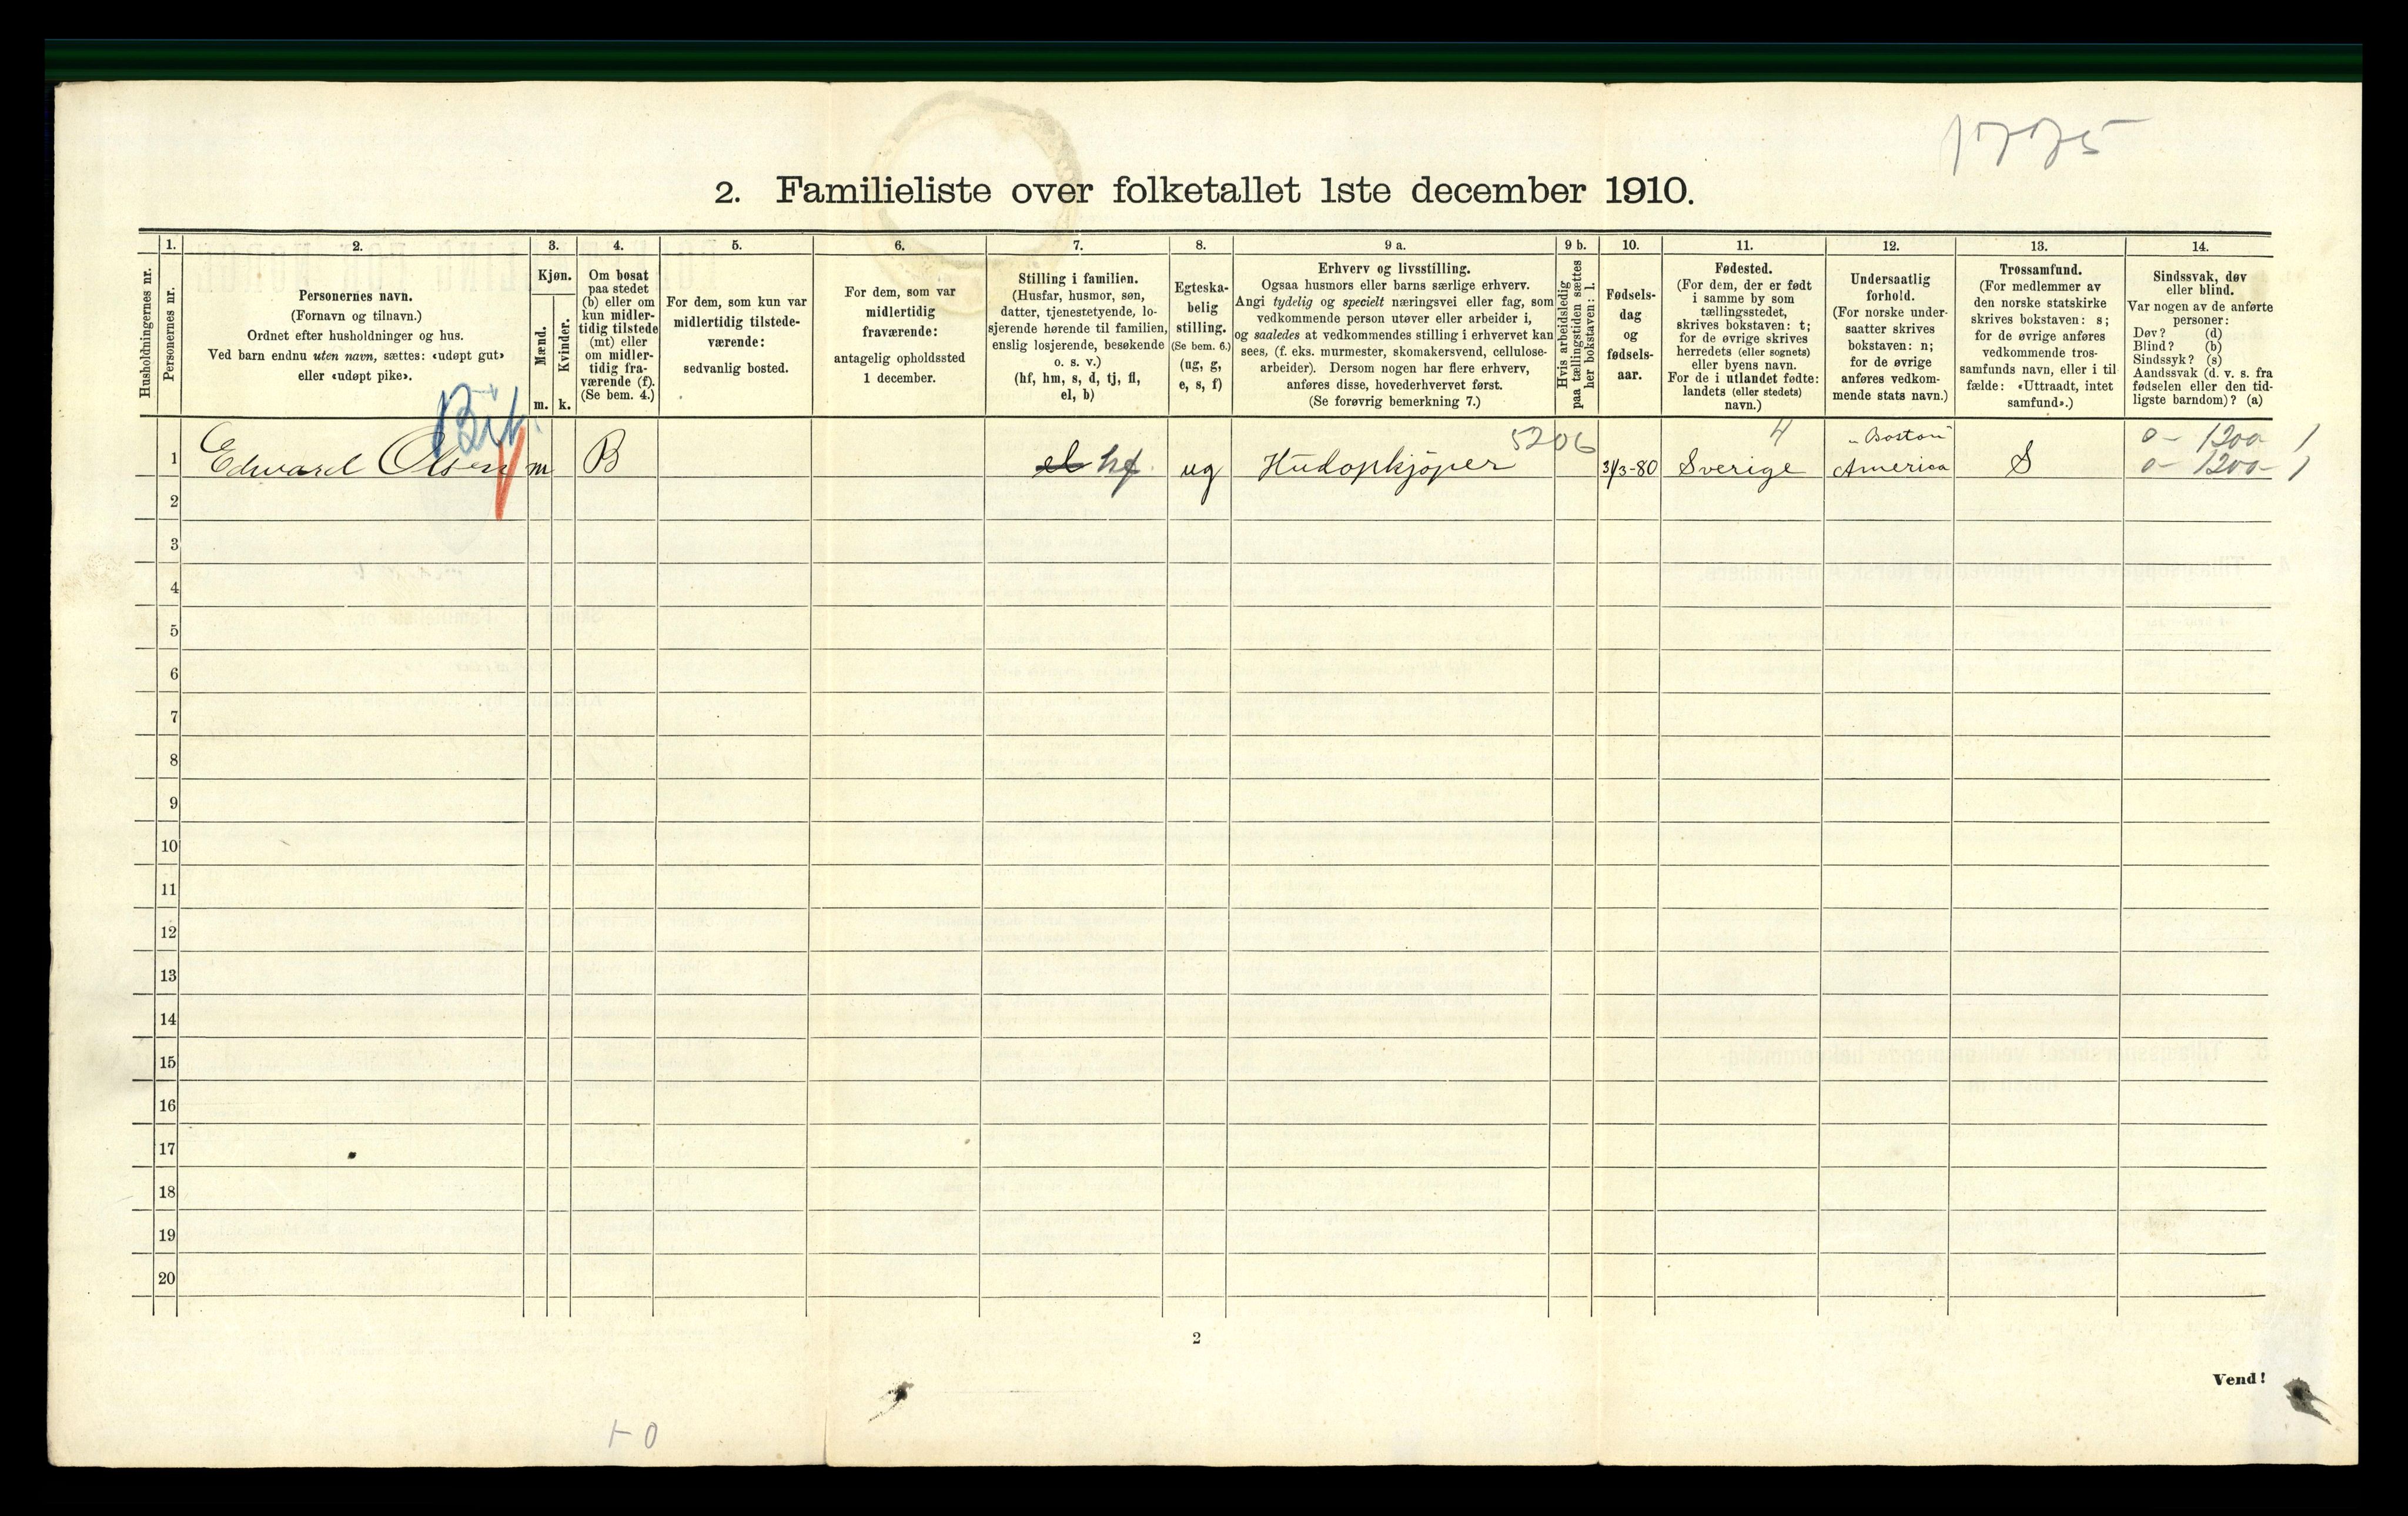 1775
2. Familieliste over folketallet 1ste december 1910.
Husholdningernes nr.
1.
Personernes nr.
2.
Personernes navn.
(Fornavn og tilnavn.)
Ordnet efter husholdninger og hus.
Ved barn endnu uten navn, sættes: «udøpt gut»
eller «udøpt pike».
3.
Kjøn.
Mænd.
m.
Kvinder.
k.
4.
Om bosat
paa stedet
(b) eller om
kun midler-
tidig tilstede
(mt) eller
om midler-
tidig fra-
værende (f).
(Se bem. 4.)
5.
For dem, som kun var
midlertidig tilstede-
værende:
sedvanlig bosted.
6.
For dem, som var
midlertidig
fraværende:
antagelig opholdssted
1 december.
7.
Stilling i familien.
(Husfar, husmor, søn,
datter, tjenestetyende, lo-
sjerende hørende til familien,
enslig losjerende, besøkende
o. s. v.)
(hf, hm, s, d, tj, fl,
el, b)
8.
Egteska-
belig
stilling.
(Se bem. 6.)
(ug, g,
e, s, f)
9 a.
Erhverv og livsstilling.
Ogsaa husmors eller barns særlige erhverv.
Angi tydelig og specielt næringsvei eller fag, som
vedkommende person utøver eller arbeider i,
og saaledes at vedkommendes stilling i erhvervet kan
sees, (f. eks. murmester, skomakersvend, cellulose-
arbeider). Dersom nogen har flere erhverv,
anføres disse, hovederhvervet først.
(Se forøvrig bemerkning 7.)
9 b.
Hvis arbeidsledig
paa tællingstiden sættes
her bokstaven: l.
10.
Fødsels-
dag
og
fødsels-
aar.
11.
Fødested.
(For dem, der er født
i samme by som
tællingsstedet,
skrives bokstaven: t;
for de øvrige skrives
herredets (eller sognets)
eller byens navn.
For de i utlandet fødte:
landets (eller stedets)
navn.)
12.
Undersaatlig
forhold.
(For norske under-
saatter skrives
bokstaven: n;
for de øvrige
anføres vedkom-
mende stats navn.)
13.
Trossamfund.
(For medlemmer av
den norske statskirke
skrives bokstaven: s;
for de øvrige anføres
vedkommende tros-
samfunds navn, eller i til-
fælde: «Uttraadt, intet
samfund».)
14.
Sindssvak, døv
eller blind.
Var nogen av de anførte
personer:
Døv? (d)
Blind? (b)
Sindssyk? (s)
Aandssvak (d. v. s. fra
fødselen eller den tid-
ligste barndom)? (a)
5206 4 "Boston" 0- 1200- 1
1 Edward Olsen m B el hf. ug Hudopkjöper 31/3-80 Sverige America S 0- 1200- 1
2
3
4
5
6
7
8
9
10
11
12
13
14
15
16
17
18
19
20
2
Vend!